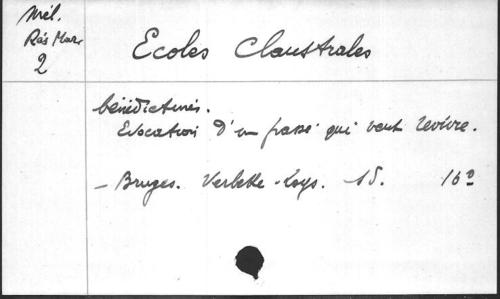 Mél.
Rés Mar.
2
Ecoles Claustrales
bénédictines.
Evocation d'un passé qui veut revivre.
- Bruges. Verbeke-Loys. S.d. 16°